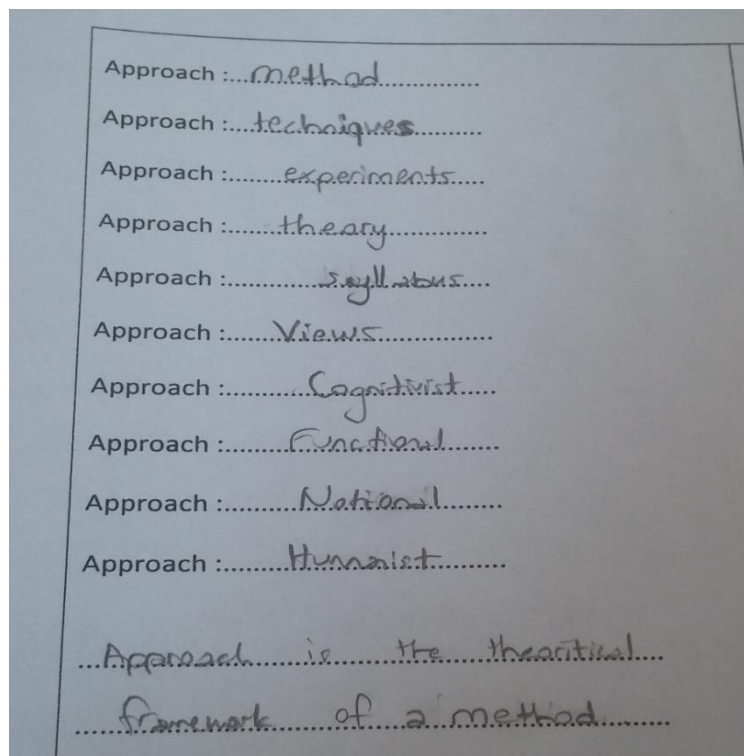 Approach :...method................
Approach :....techniques...........
Approach :........experiments.....
Approach :.......theory...............
Approach :.............sayllabus....
Approach :.......Views.................
Approach :............Cognitivist.....
Approach :.........Functional........
Approach :..........Notional.........
Approach :.........Humanist..........
...Approach is the theoritical....
......framework of a method.........